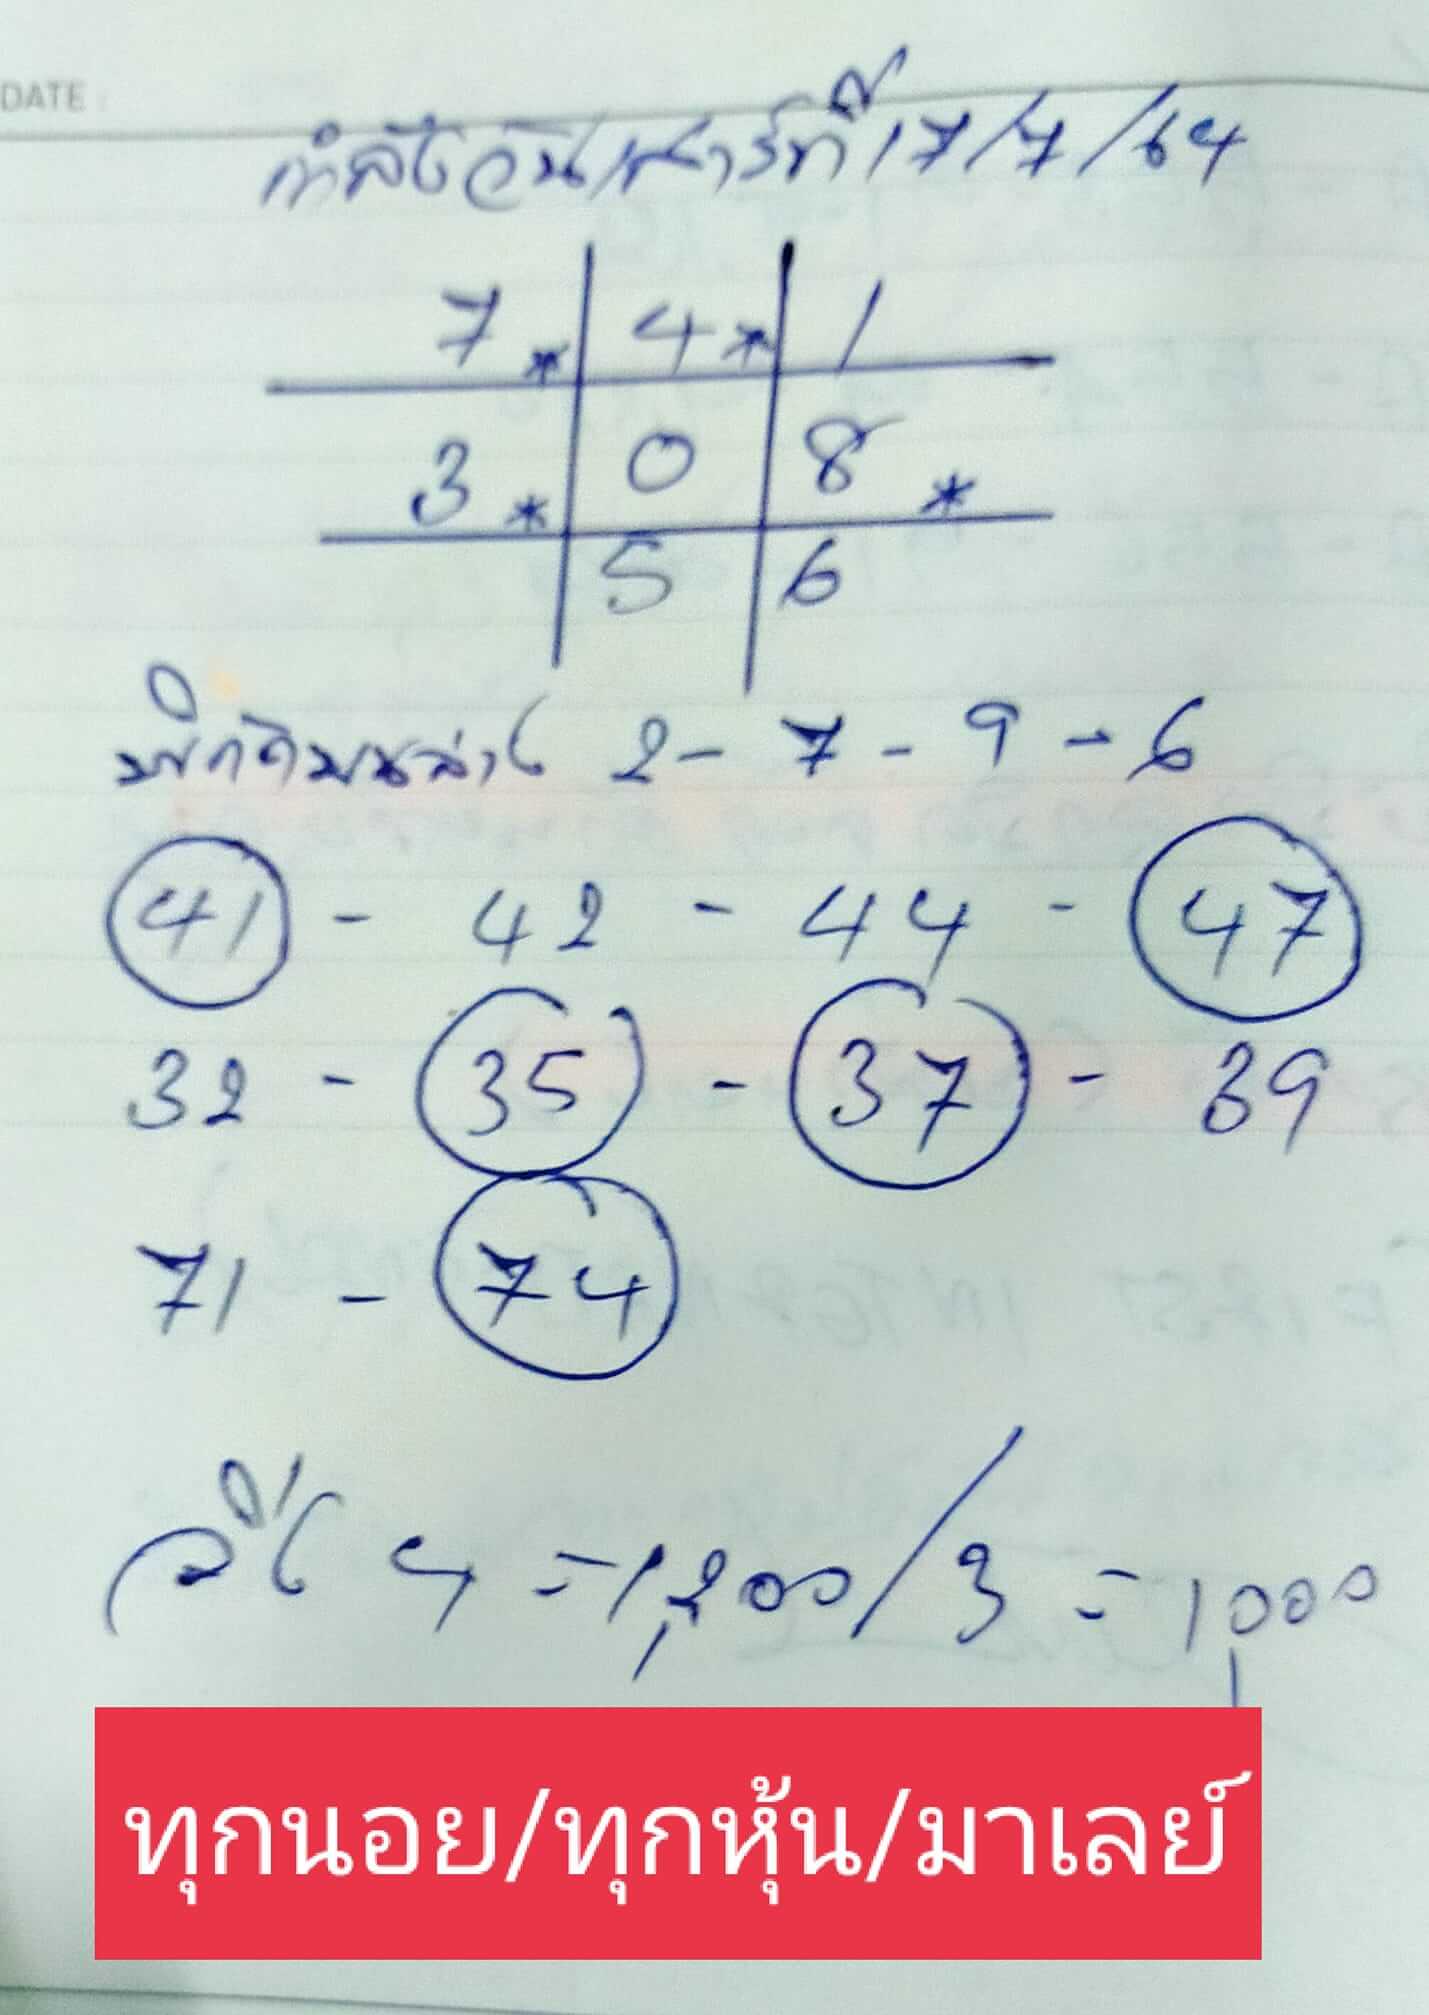 DATE
กำลังวันเสาร์ที่ 17/7/64
7* 4* 1
3* 0 8*
5 6
พิกัดบนล่าง 2-7-9-6
41 - 42 - 44 - 47
32 - 35 - 37 - 39
71 - 74
วิ่ง 4 = 1,200/3 = 1,000
ทุกนอย/ทุกหุ้น/มาเลย์